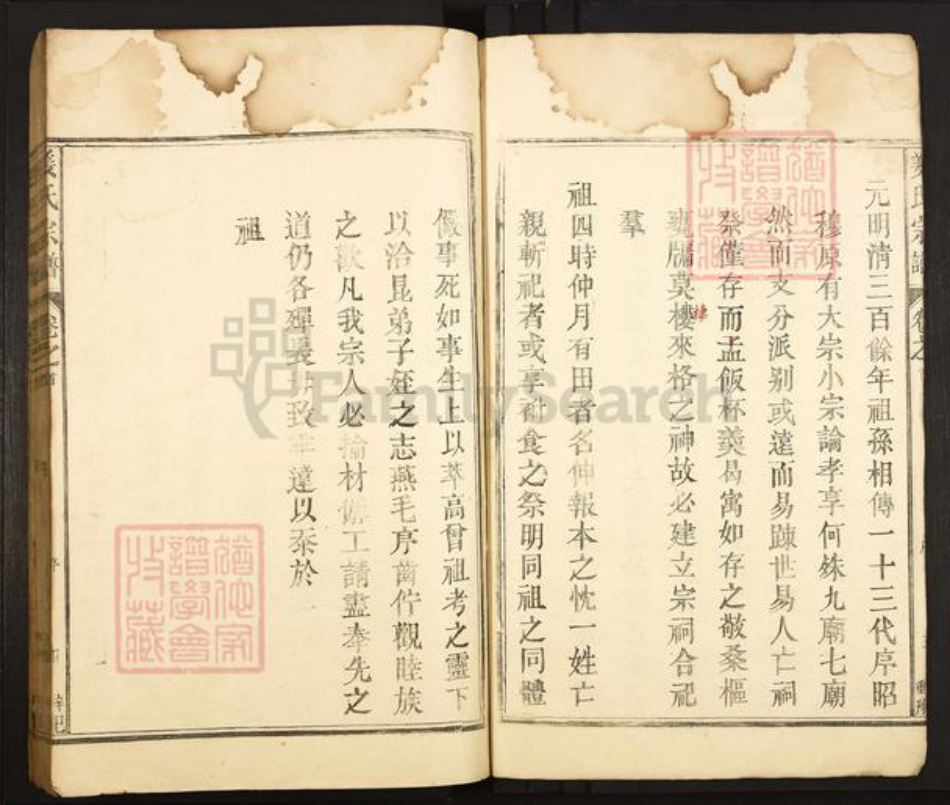 元明清三百餘年祖孫相傳一十三代序昭
穆原有大宗小宗論孝享何殊九廟七廟
然而支分派别或遠而易踈世易人亡祠
祭僅存而盂飯杯羮曷寓如存之敬桑樞
甕牖莫棲來格之神故必建立宗祠合祀
羣
祖四時仲月有田者名伸報本之忱一姓亡
親斬祀者或享祔食之祭明同祖之同體
儼事死如事生上以萃高曾祖考之靈下
以洽昆弟子姪之志燕毛序齒佇觀睦族
之歡凡我宗人必掄材儲工請盡奉先之
道仍各殫
達以忝於
祖
氏宗譜
卷之首
FamilySearch
猶他家
譜學會
收藏